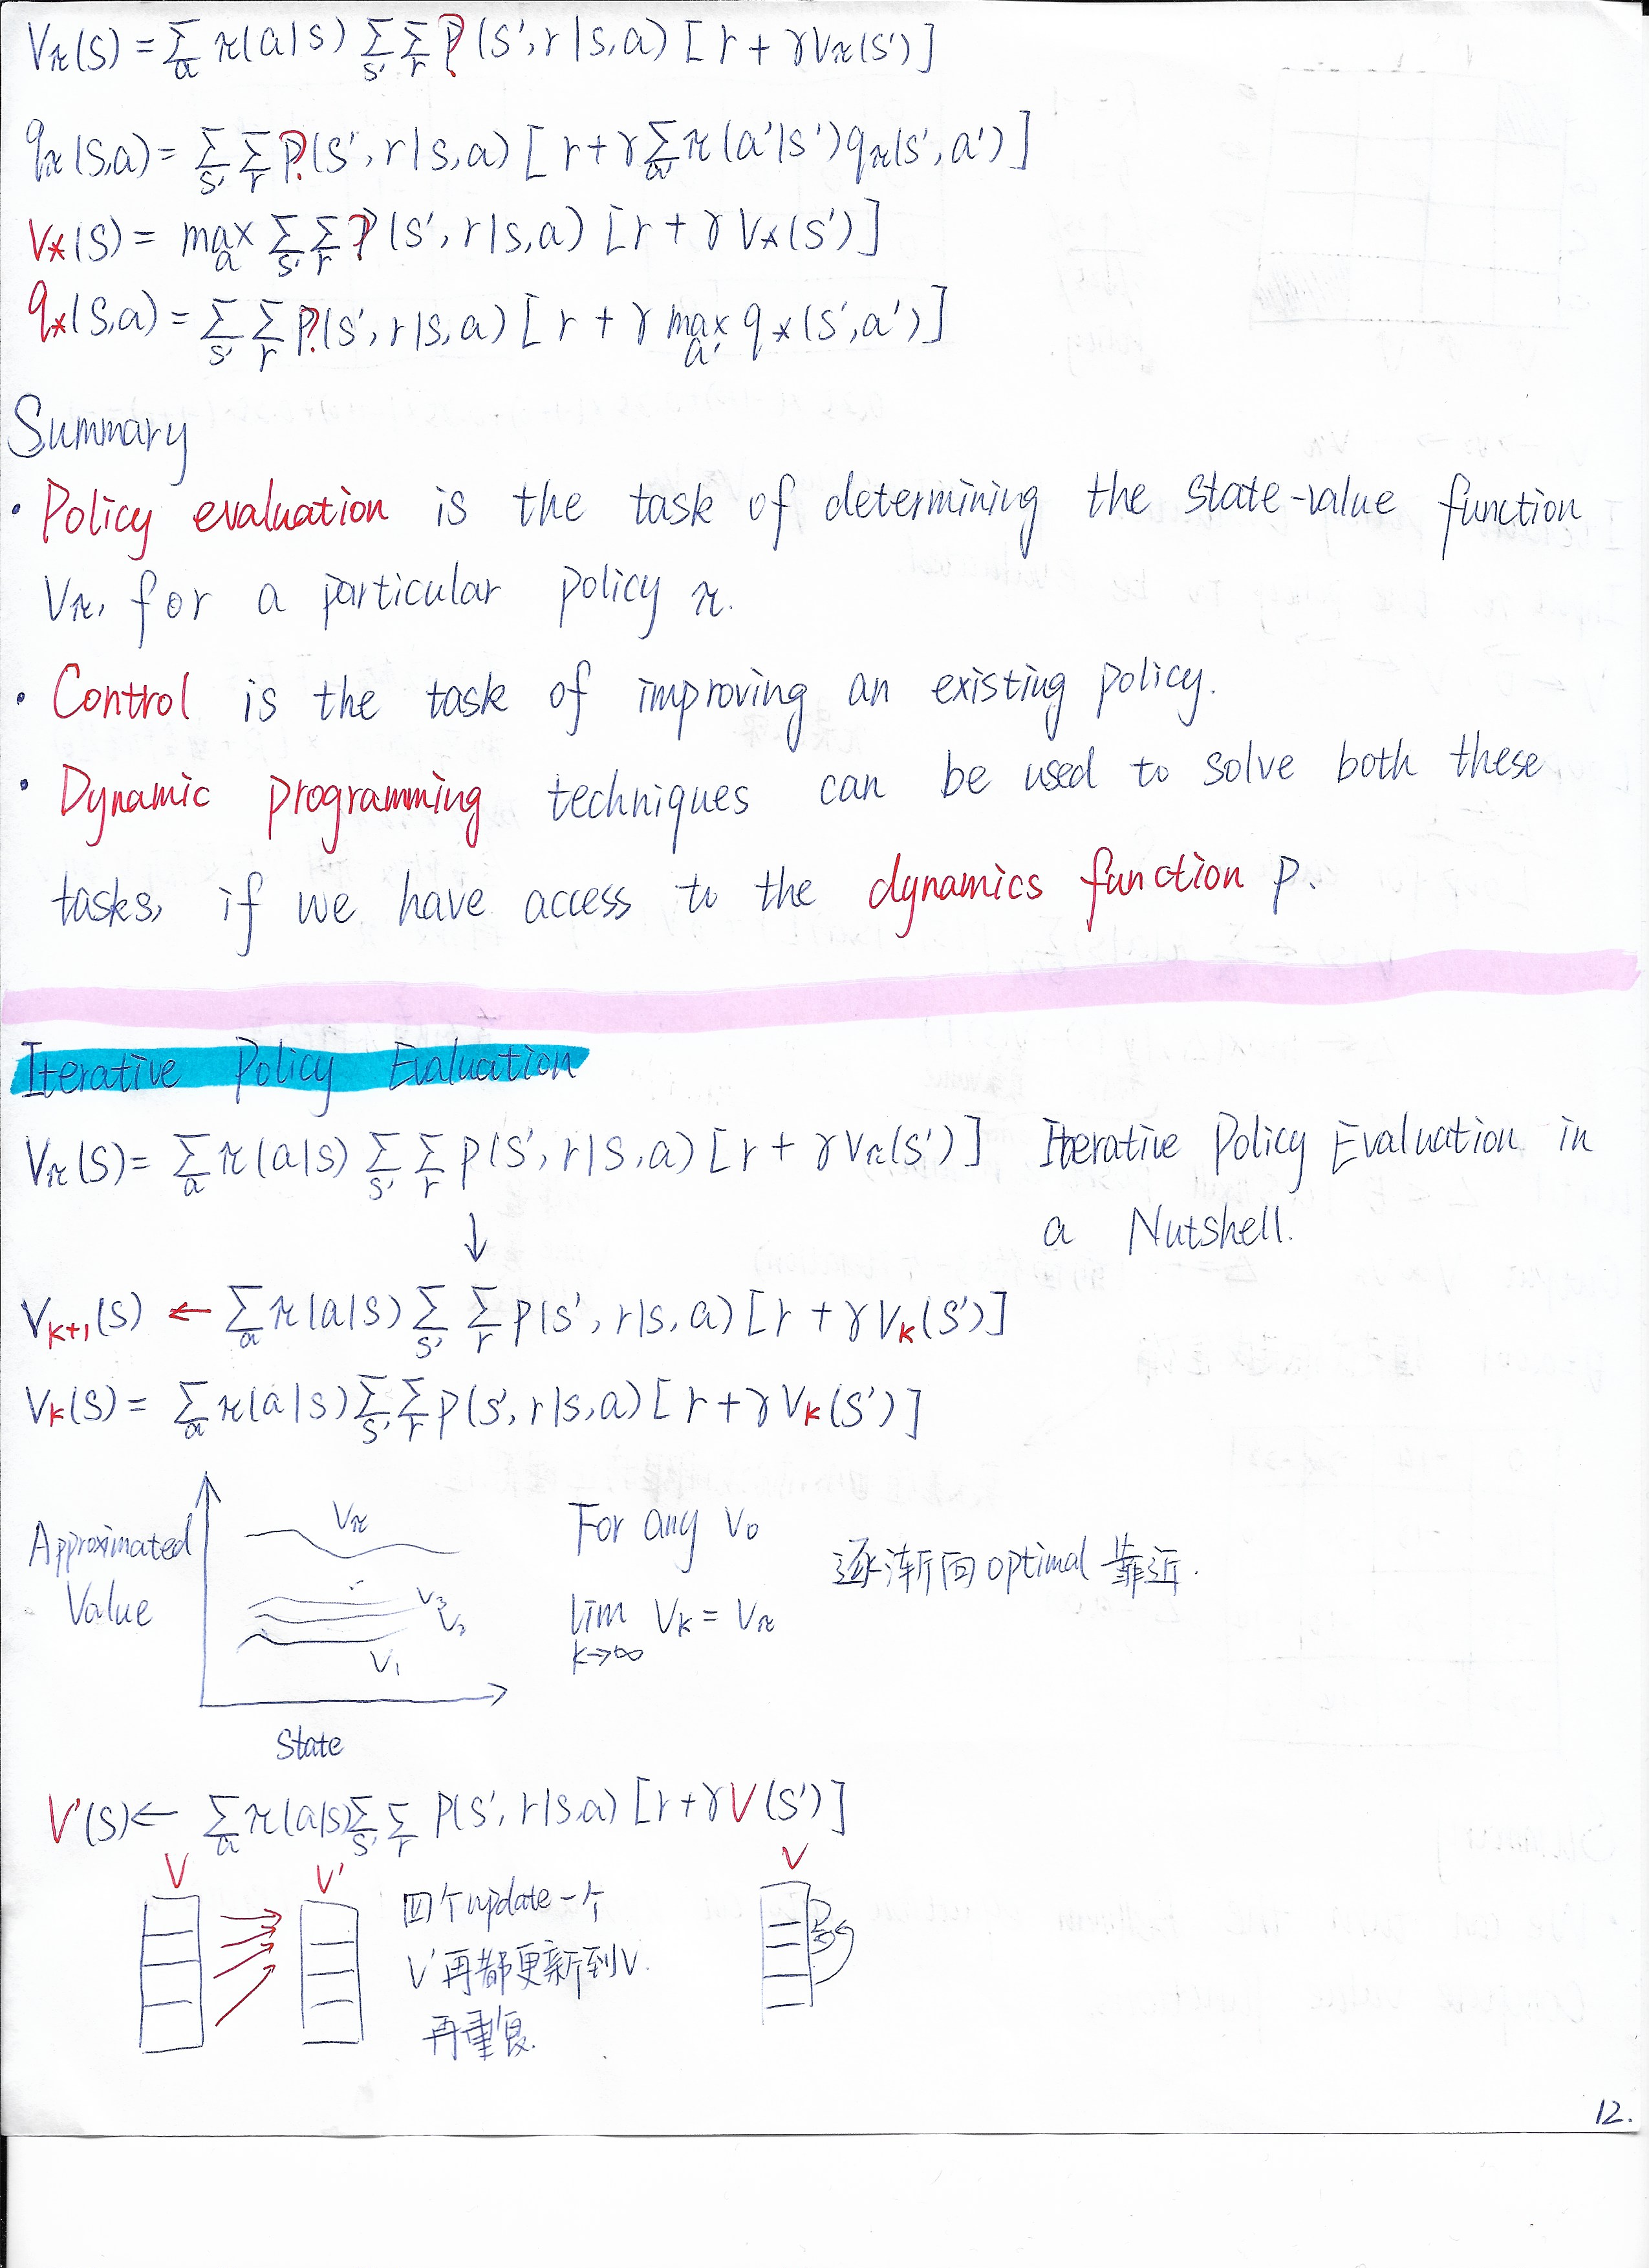 Vπ(s) = Σ_a π(a|s) Σ_s' Σ_r p?(s', r|s, a) [r + γVπ(s')]
qπ(s,a) = Σ_s' Σ_r p?(s', r|s, a) [r + γ Σ_a' π(a'|s') qπ(s', a')]
V*(s) = max_a Σ_s' Σ_r p?(s', r|s, a) [r + γ V*(s')]
q*(s,a) = Σ_s' Σ_r p?(s', r|s, a) [r + γ max_a' q*(s', a')]
Summary
· Policy evaluation is the task of determining the state-value function
Vπ, for a particular policy π.
· Control is the task of improving an existing policy.
· Dynamic programming techniques can be used to solve both these
tasks, if we have access to the dynamics function p.
Iterative Policy Evaluation
Vπ(s) = Σ_a π(a|s) Σ_s' Σ_r p(s', r|s, a) [r + γVπ(s')] Iterative Policy Evaluation in
a Nutshell.
↓
V_k+1(s) ← Σ_a π(a|s) Σ_s' Σ_r p(s', r|s, a) [r + γ V_k(s')]
V_k(s) = Σ_a π(a|s) Σ_s' Σ_r p(s', r|s, a) [r + γ V_k(s')]
Approximated
Value
Vπ
V3
V2
V1
State
For any V0
lim k→∞ V_k = Vπ
逐渐向optimal 靠近.
V'(s) ← Σ_a π(a|s) Σ_s' Σ_r p(s', r|s,a) [r + γV(s')]
V V' V
四个update一个
V'再都更新到V.
再重复.
12.